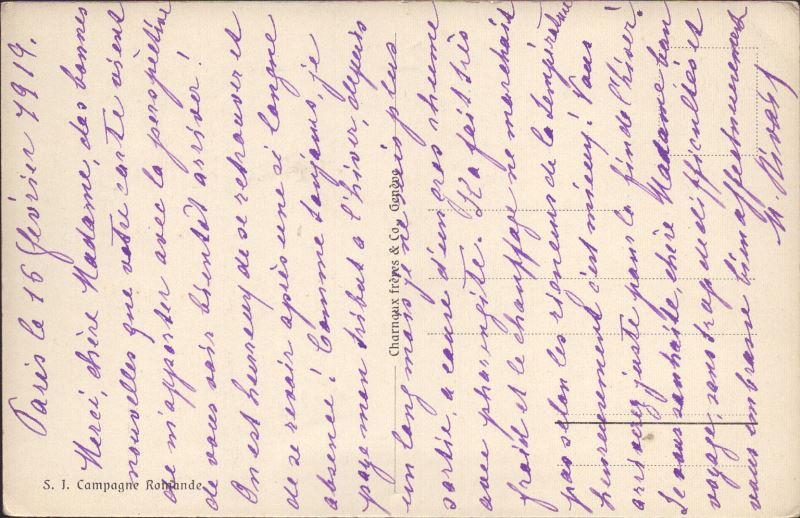 Paris le 16 février 1919.
Merci, chère Madame, des bonnes
nouvelles que votre carte vient
de m'apporter avec la perspective
de vous voir bientôt arriver!
On est heureux de se retrouver et
de se revoir après une si longue
absence! Comme toujours, je
paye mon tribut à l'hiver, depuis
un long mois je ne suis plus
sortie, à cause d'un gros rhume
avec pharyngite. Il a fait très
froid et le chauffage ne marchait
pas selon les rigueurs de la température
heureusement c'est mieux! Vous
arriverez juste pour la fin de l'hiver.
Je vous souhaite, chère Madame bon
voyage, sans trop de difficultés et
vous embrasse bien affectueusement
S. J. Campagne Romande.
Charnaux frères & Co., Genève